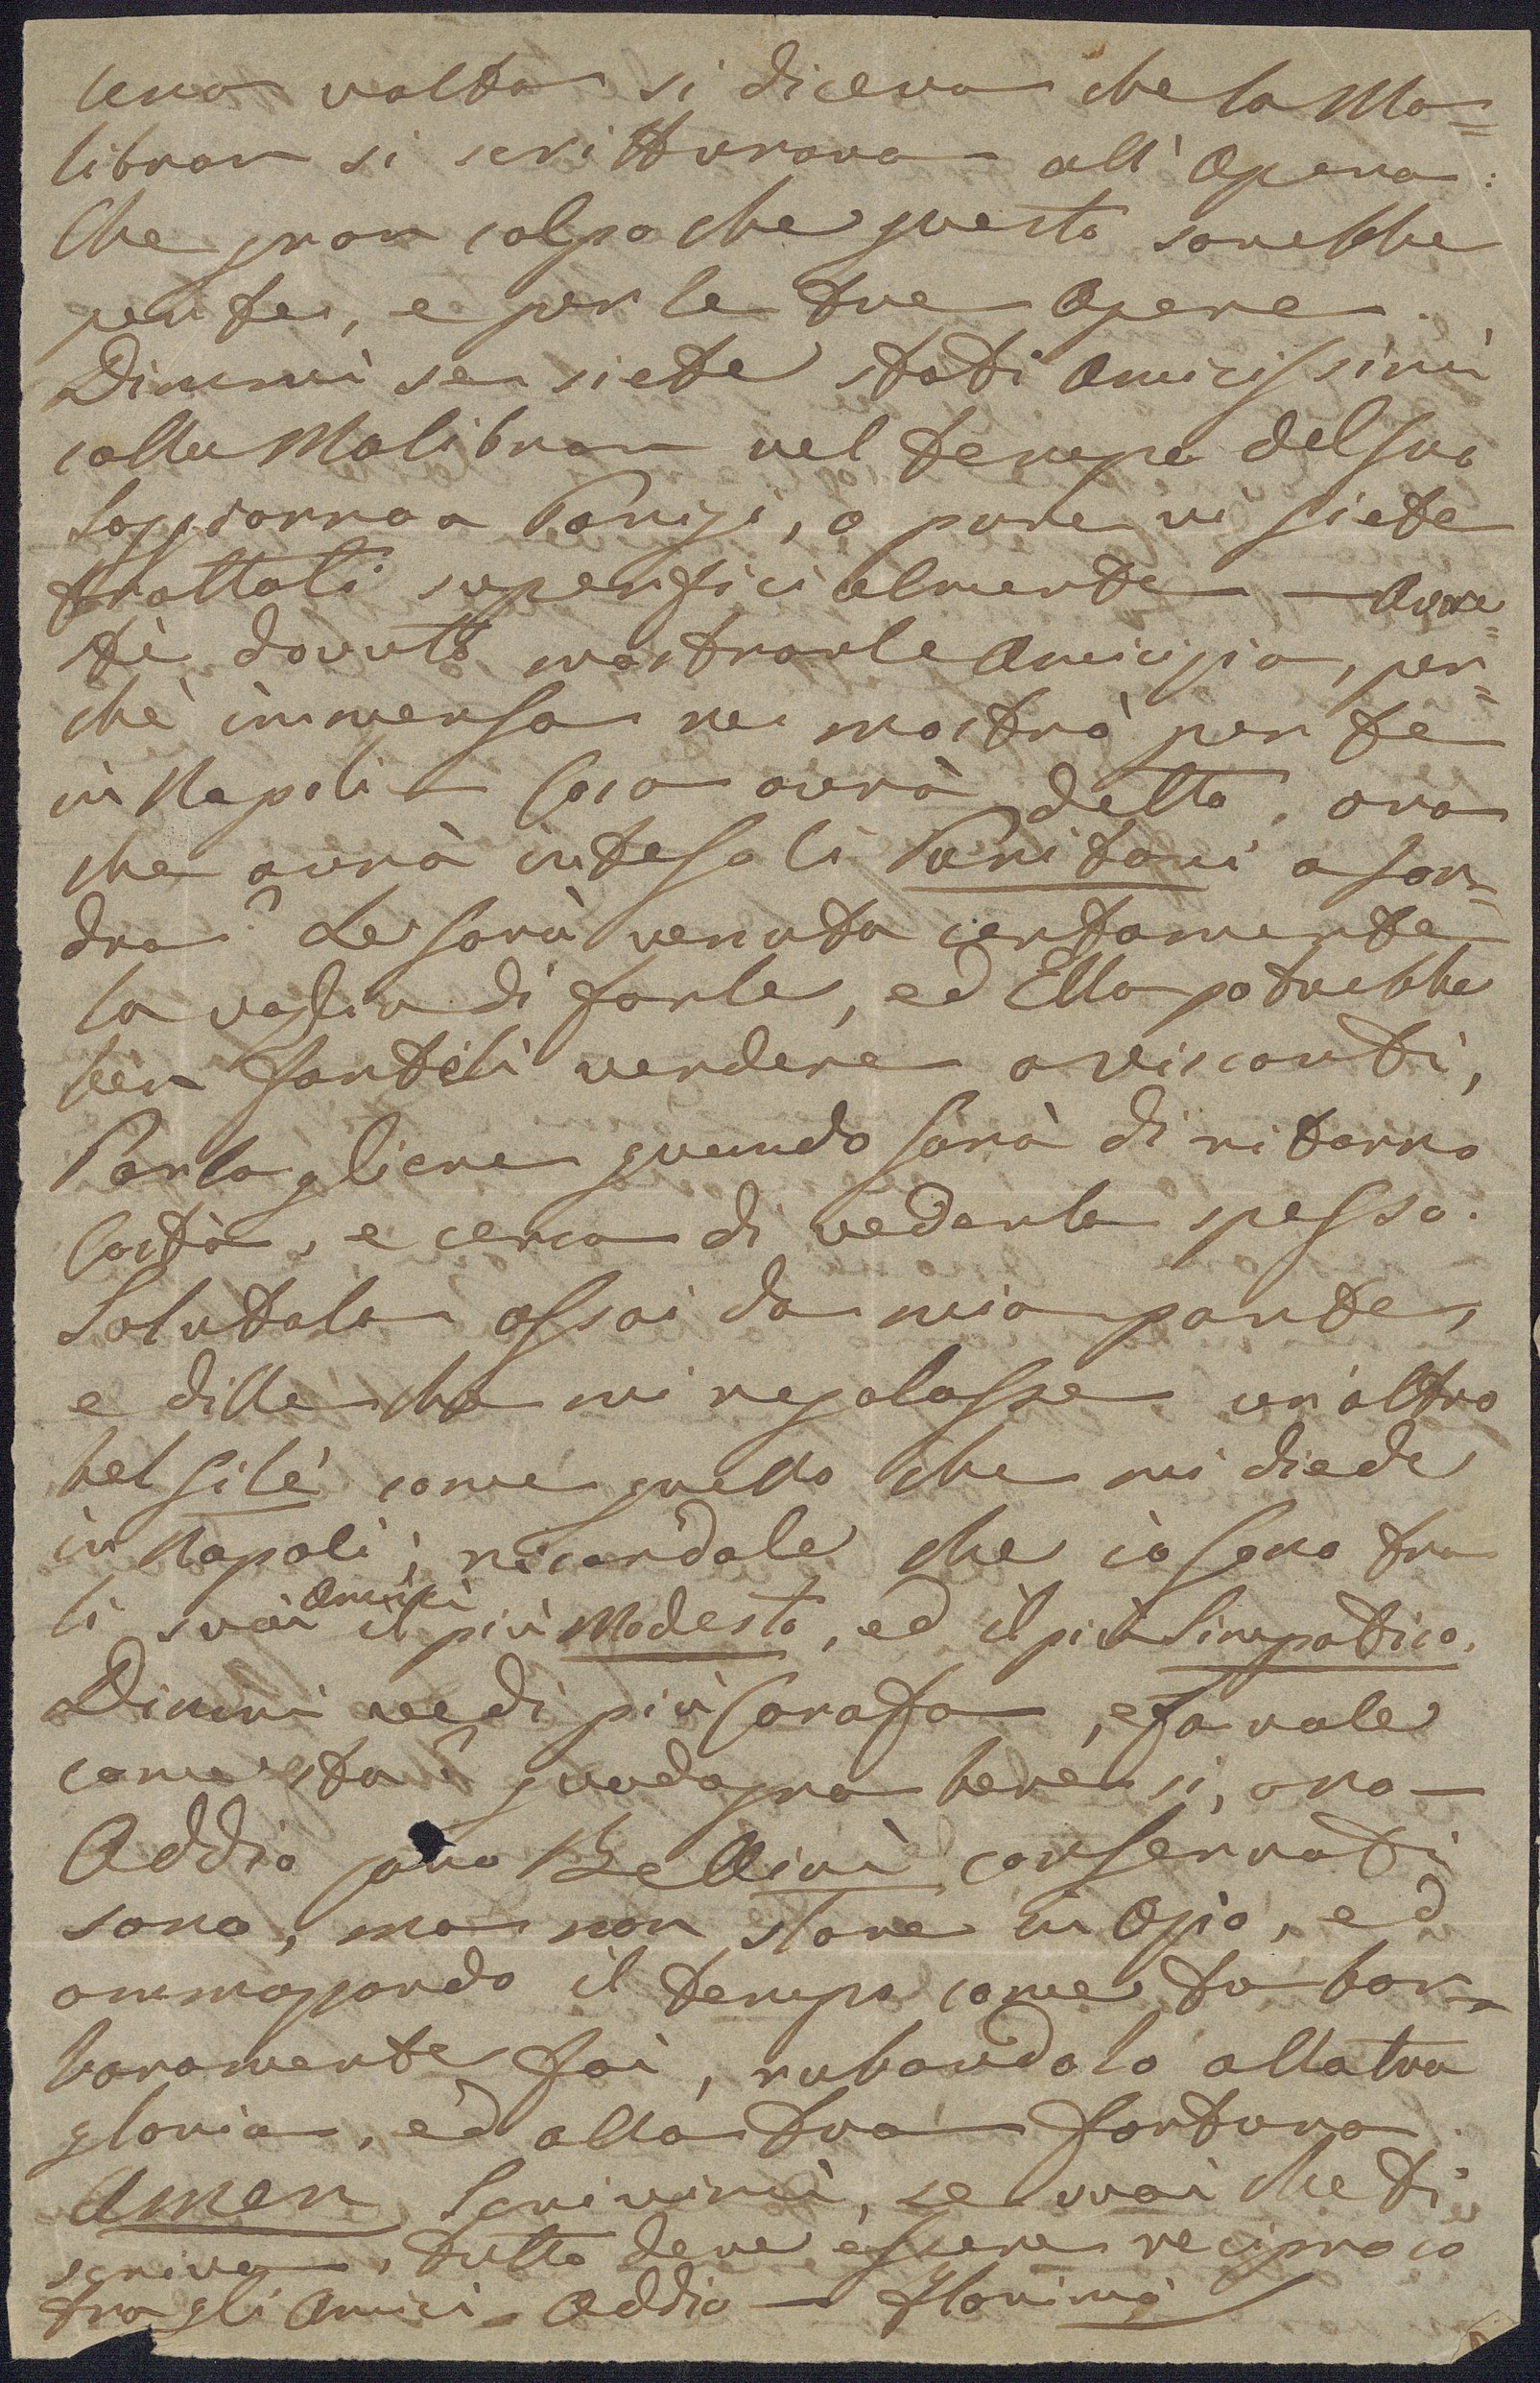 Una volta si diceva che la Ma=
libran si scritturava all'Opera:
Che gran colpo che questo sarebbe
per te, e per le tue Opere.
Dimmi se siete stati Amicissimi
colla Malibran nel tempo del suo
Soggiorno a Parigi, o pure vi siete
trattati superficialmente — Avre=
te dovuto mostrarle Amicizia, per=
chè immensa ne mostrò per te
in Napoli — Cosa avrà detto, ora
che avrà inteso li Puritani a Lon=
dra? Le sarà venuta certamente
la voglia di farli, ed Ella potrebbe
ben farteli vendere a Visconti,
Parlagliene quando sarà di ritorno
Costà, e cerca di vederla spesso.
Salutala assai da mia parte,
e dille che mi regalasse un'altro
bel gilè come quello che mi diede
in Napoli; ricordale che io sono fra
li suoi Amici il più Modesto, ed il più Simpatico.
Dimmi vedi più Carafa, e Tavale
come sta? guadagna benesi, ora —
Addio caro Bellini conservati
sano, ma non stare in Ozio, ed
ammazzando il tempo come tu bar=
baramente fai, rubandolo alla tua
gloria, ed alla tua fortuna.
Amen Scrivimi, se vuoi che ti
scriva, tutto deve essere reciproco
fra gli Amici. Addio — Florimo